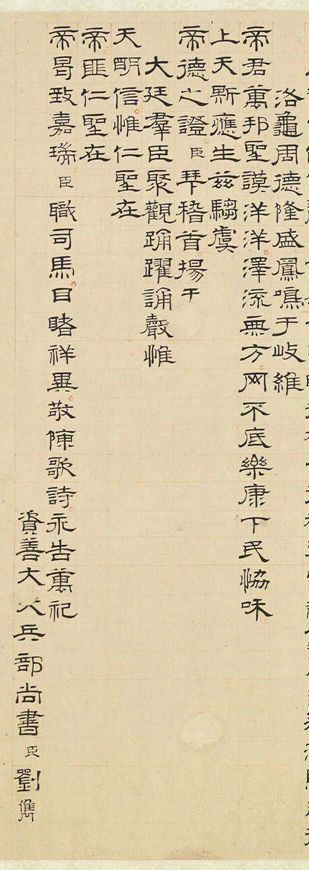 洛龜周德隆盛鳳鳴于岐維
帝君萬邦聖謨洋洋澤流無方罔不底樂康下民恊咊
上天斯應生茲騶虞
帝德之證臣拜稽首揚于
大廷羣臣聚觀踊躍誦聲惟
天眀信惟仁聖在
帝匪仁聖在
帝曷致嘉瑞臣職司馬目睹祥異敬陳歌詩永告萬祀
資善大夫兵部尚書臣劉儁